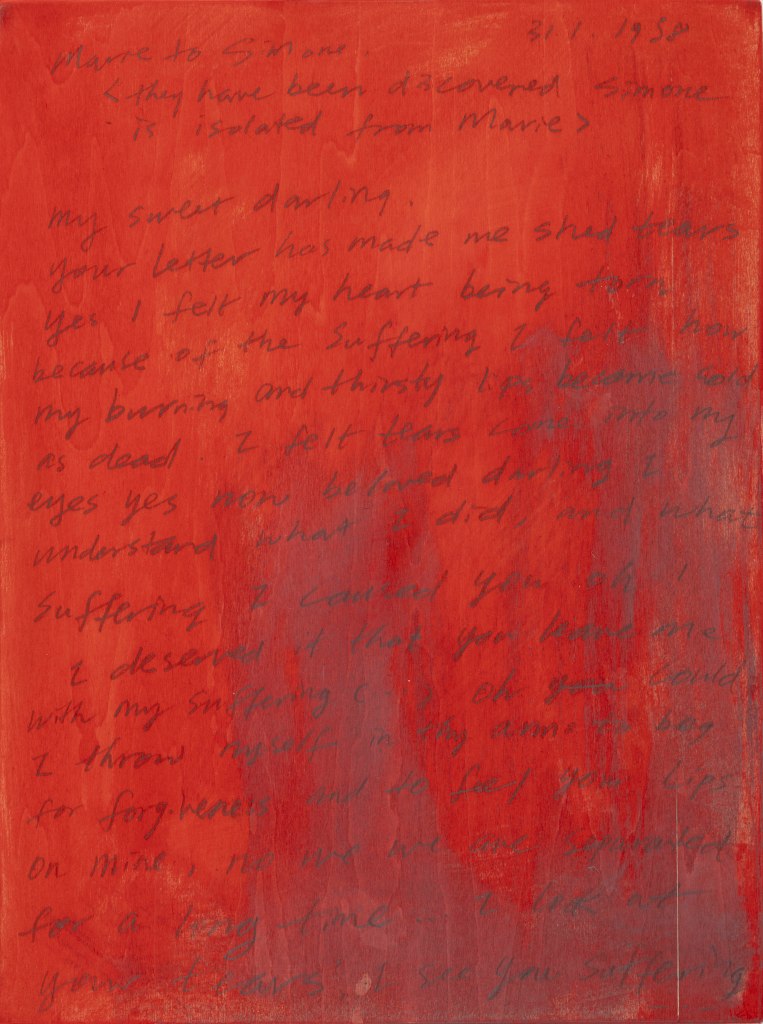 Marie to Simone. 31.1.1938
<they have been discovered Simone
is isolated from Marie>
my sweet darling.
your letter has made me shed tears
yes I felt my heart being torn
because of the suffering I felt how
my burning and thirsty lips became cold
as dead. I felt tears come into my
eyes yes now beloved darling I
understand what I did, and what
suffering I caused you oh!
I deserved it that you leave me
with my suffering ( ) oh could
I throw myself in thy arms to beg
for forgiveness and to feel your lips
on mine, no we are separated
for a long time ... I look at
your tears, I see you suffering